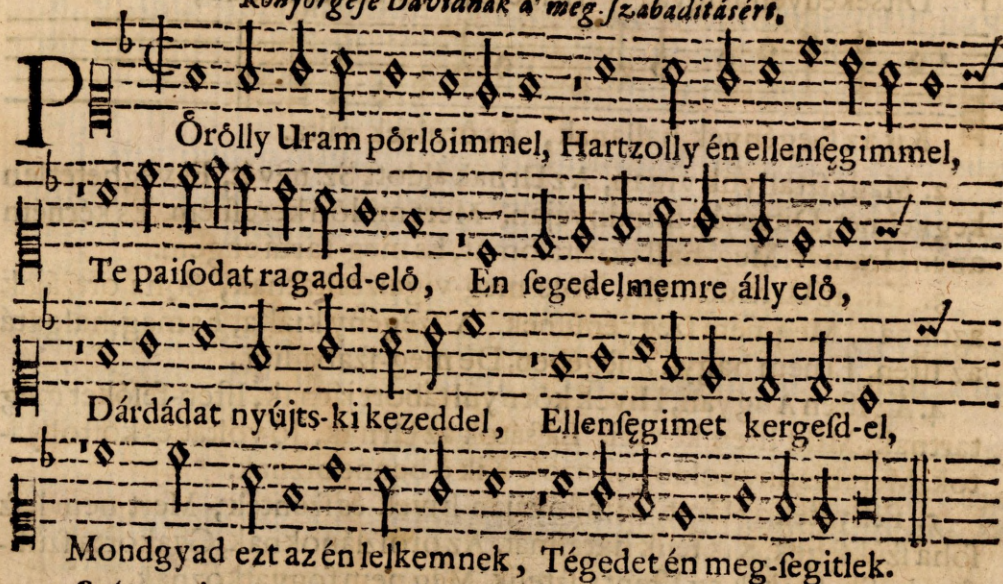 Könyörgése Dávidnak a' meg-ſzabaditásért.
PÖrölly Uram pörlöimmel, Hartzolly én ellenſęgimmel,
Te paiſodat ragadd-elö, En ſegedelmemre álly elö,
Dárdádat nyújts-ki kezeddel, Ellenſęgimet kergeſd-el,
Mondgyad ezt az én lelkemnek, Tégedet én meg-ſegitlek.